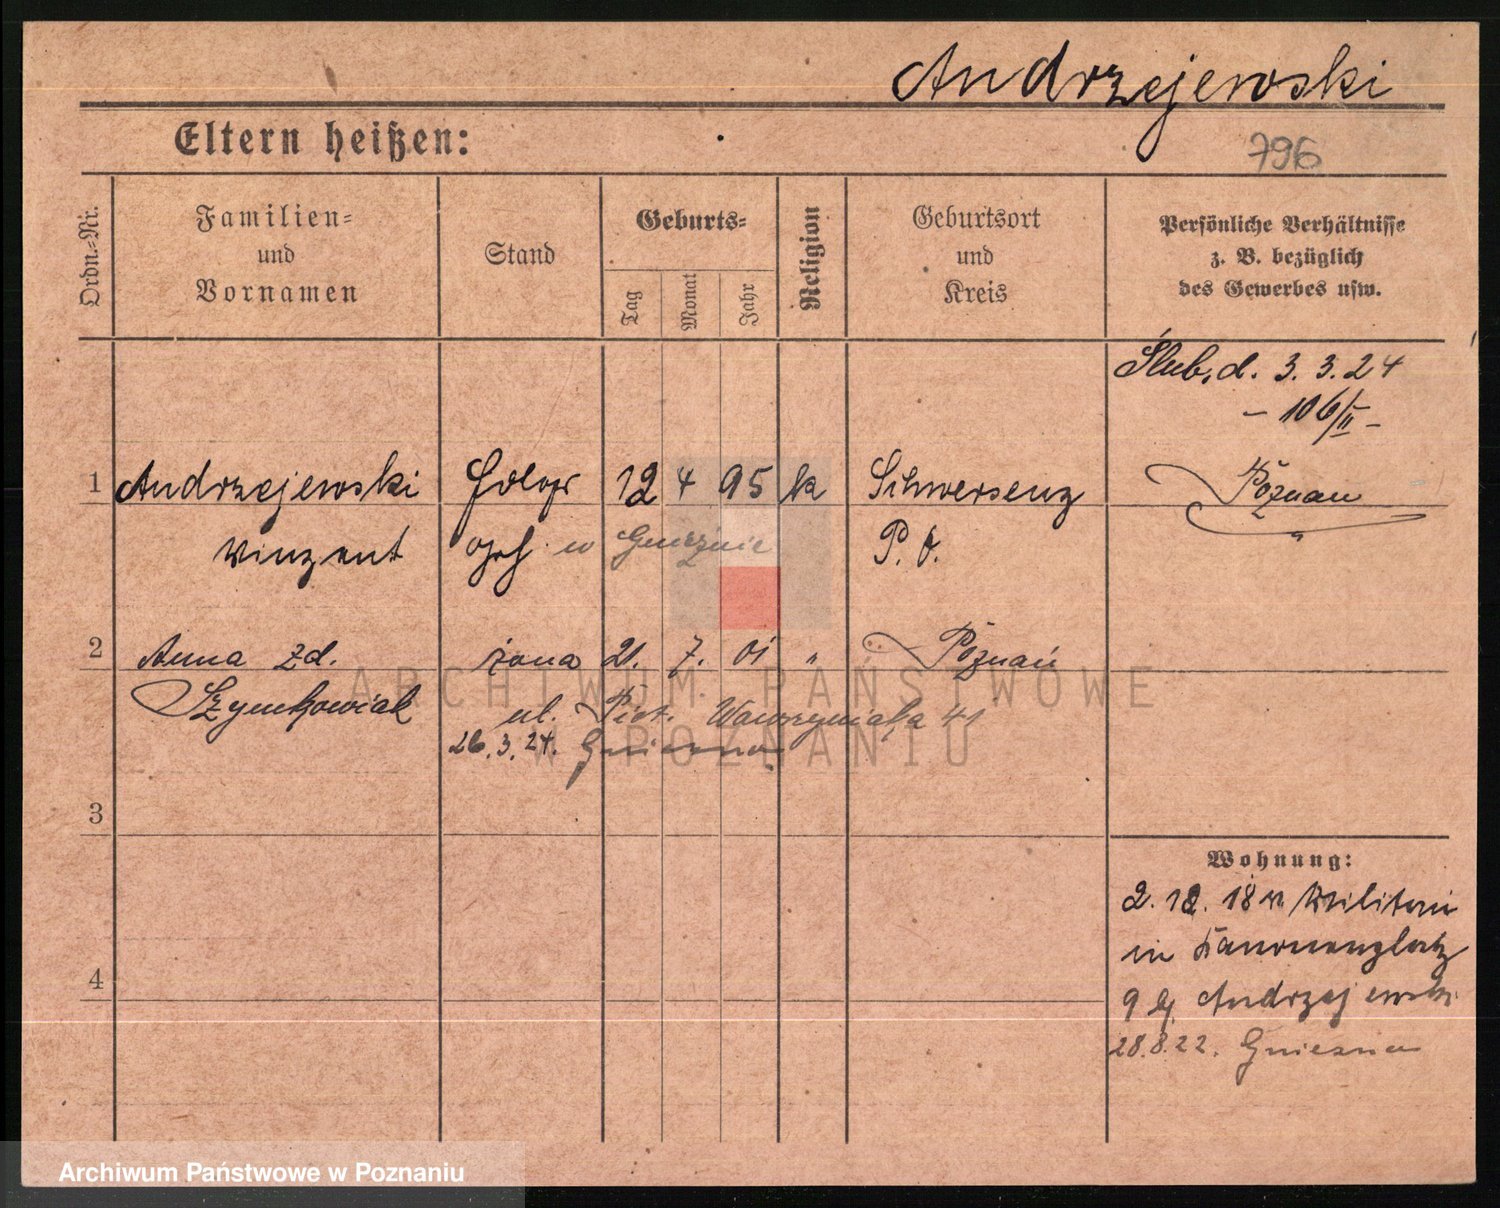 Andrzejewski
Eltern heißen:
796
Ordn.-Nr.
Familien-
und
Vornamen
Stand
Geburts-
Tag
Monat
Jahr
Religion
Geburtsort
und
Kreis
Persönliche Verhältnisse
z. B. bezüglich
des Gewerbes usw.
Ślub, d. 3. 3. 24
- 106/II -
Poznań
1 Andrzejewski 12 4 95 k Schwersenz
Winzent w Gnieźnie P. O.
2 Anna zd. żona 21. 7. 01 " Poznań
Szymkowiak
ul. Wawrzyniaka 41
26.3.24. Gniezno
3
4
Wohnung:
2. 12. 18 v Militär
in Kanonenplatz
9 Andrzejewski
28.8.22. Gniezno
ARCHIWUM PAŃSTWOWE
W POZNANIU
Archiwum Państwowe w Poznaniu